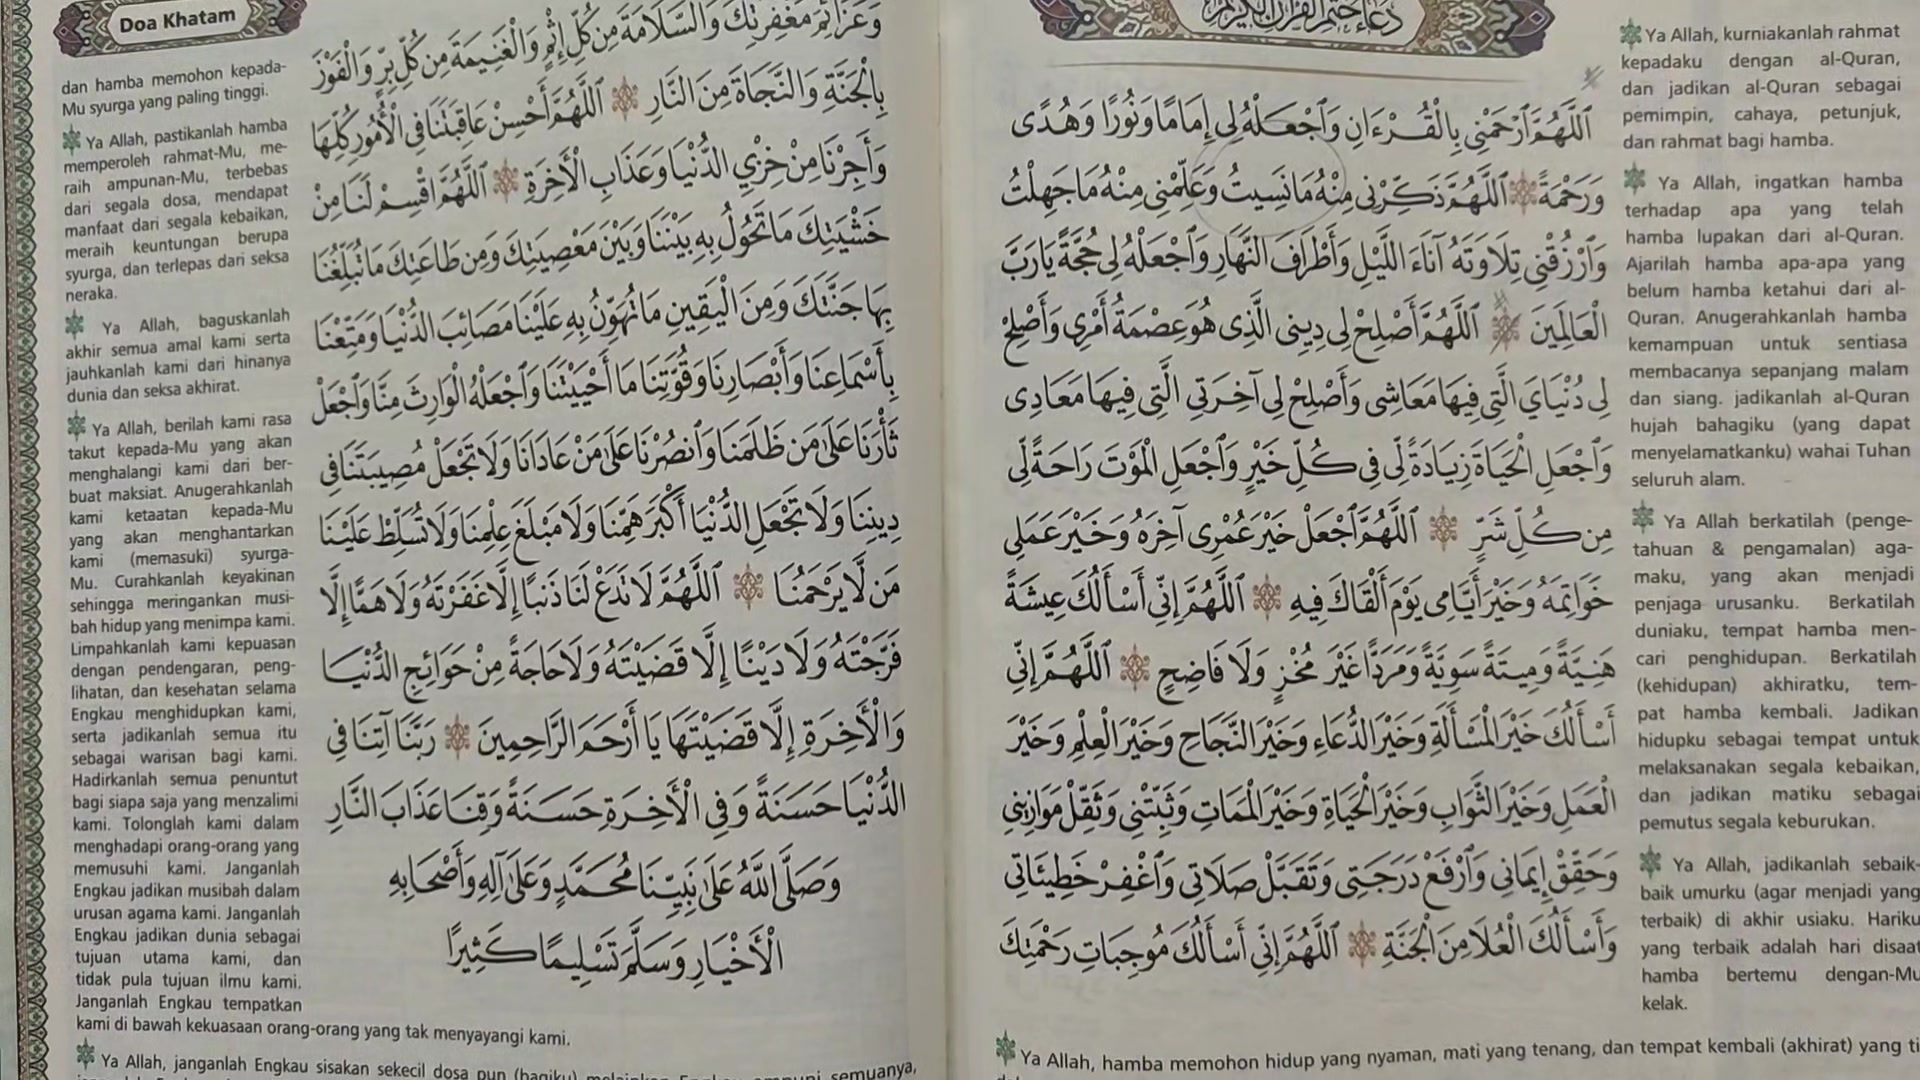 دعاء ختم القرآن الكريم
اَللَّهُمَّ ٱرْحَمْنِي بِالْقُرْءَانِ وَٱجْعَلْهُ لِي إِمَامًا وَنُورًا وَهُدًى
وَرَحْمَةً اَللَّهُمَّ ذَكِّرْنِي مِنْهُ مَا نَسِيتُ وَعَلِّمْنِي مِنْهُ مَا جَهِلْتُ
وَٱرْزُقْنِي تِلَاوَتَهُ آنَاءَ اللَّيْلِ وَأَطْرَافَ النَّهَارِ وَٱجْعَلْهُ لِي حُجَّةً يَا رَبَّ
الْعَالَمِينَ اَللَّهُمَّ أَصْلِحْ لِي دِينِي الَّذِي هُوَ عِصْمَةُ أَمْرِي وَأَصْلِحْ
لِي دُنْيَايَ الَّتِي فِيهَا مَعَاشِي وَأَصْلِحْ لِي آخِرَتِي الَّتِي فِيهَا مَعَادِي
وَٱجْعَلِ الْحَيَاةَ زِيَادَةً لِّي فِي كُلِّ خَيْرٍ وَٱجْعَلِ الْمَوْتَ رَاحَةً لِّي
مِن كُلِّ شَرٍّ اَللَّهُمَّ ٱجْعَلْ خَيْرَ عُمْرِي آخِرَهُ وَخَيْرَ عَمَلِي
خَوَاتِمَهُ وَخَيْرَ أَيَّامِي يَوْمَ أَلْقَاكَ فِيهِ اَللَّهُمَّ إِنِّي أَسْأَلُكَ عِيشَةً
هَنِيَّةً وَمِيتَةً سَوِيَّةً وَمَرَدًّا غَيْرَ مُخْزٍ وَلَا فَاضِحٍ اَللَّهُمَّ إِنِّي
أَسْأَلُكَ خَيْرَ الْمَسْأَلَةِ وَخَيْرَ الدُّعَاءِ وَخَيْرَ النَّجَاحِ وَخَيْرَ الْعِلْمِ وَخَيْرَ
الْعَمَلِ وَخَيْرَ الثَّوَابِ وَخَيْرَ الْحَيَاةِ وَخَيْرَ الْمَمَاتِ وَثَبِّتْنِي وَثَقِّلْ مَوَازِينِي
وَحَقِّقْ إِيمَانِي وَٱرْفَعْ دَرَجَتِي وَتَقَبَّلْ صَلَاتِي وَٱغْفِرْ خَطِيئَاتِي
وَأَسْأَلُكَ الْعُلَا مِنَ الْجَنَّةِ اَللَّهُمَّ إِنِّي أَسْأَلُكَ مُوجِبَاتِ رَحْمَتِكَ
Ya Allah, kurniakanlah rahmat
kepadaku dengan al-Quran,
dan jadikan al-Quran sebagai
pemimpin, cahaya, petunjuk,
dan rahmat bagi hamba.
Ya Allah, ingatkan hamba
terhadap apa yang telah
hamba lupakan dari al-Quran.
Ajarilah hamba apa-apa yang
belum hamba ketahui dari al-
Quran. Anugerahkanlah hamba
kemampuan untuk sentiasa
membacanya sepanjang malam
dan siang. jadikanlah al-Quran
hujah bahagiku (yang dapat
menyelamatkanku) wahai Tuhan
seluruh alam.
Ya Allah berkatilah (penge-
tahuan & pengamalan) aga-
maku, yang akan menjadi
penjaga urusanku. Berkatilah
duniaku, tempat hamba men-
cari penghidupan. Berkatilah
(kehidupan) akhiratku, tem-
pat hamba kembali. Jadikan
hidupku sebagai tempat untuk
melaksanakan segala kebaikan,
dan jadikan matiku sebagai
pemutus segala keburukan.
Ya Allah, jadikanlah sebaik-
baik umurku (agar menjadi yang
terbaik) di akhir usiaku. Hariku
yang terbaik adalah hari disaat
hamba bertemu dengan-Mu
kelak.
Ya Allah, hamba memohon hidup yang nyaman, mati yang tenang, dan tempat kembali (akhirat) yang
Doa Khatam
وَعَزَائِمَ مَغْفِرَتِكَ وَالسَّلَامَةَ مِن كُلِّ إِثْمٍ وَالْغَنِيمَةَ مِن كُلِّ بِرٍّ وَالْفَوْزَ
بِالْجَنَّةِ وَالنَّجَاةَ مِنَ النَّارِ اَللَّهُمَّ أَحْسِنْ عَاقِبَتَنَا فِي الْأُمُورِ كُلِّهَا
وَأَجِرْنَا مِنْ خِزْيِ الدُّنْيَا وَعَذَابِ الْأَخِرَةِ اَللَّهُمَّ اقْسِمْ لَنَا مِنْ
خَشْيَتِكَ مَا تَحُولُ بِهِ بَيْنَنَا وَبَيْنَ مَعْصِيَتِكَ وَمِن طَاعَتِكَ مَا تُبَلِّغُنَا
بِهَا جَنَّتَكَ وَمِنَ الْيَقِينِ مَا تُهَوِّنُ بِهِ عَلَيْنَا مَصَائِبَ الدُّنْيَا وَمَتِّعْنَا
بِأَسْمَاعِنَا وَأَبْصَارِنَا وَقُوَّتِنَا مَا أَحْيَيْتَنَا وَٱجْعَلْهُ الْوَارِثَ مِنَّا وَٱجْعَلْ
ثَأْرَنَا عَلَىٰ مَن ظَلَمَنَا وَٱنصُرْنَا عَلَىٰ مَنْ عَادَانَا وَلَا تَجْعَلْ مُصِيبَتَنَا فِي
دِينِنَا وَلَا تَجْعَلِ الدُّنْيَا أَكْبَرَ هَمِّنَا وَلَا مَبْلَغَ عِلْمِنَا وَلَا تُسَلِّطْ عَلَيْنَا
مَن لَّا يَرْحَمُنَا اَللَّهُمَّ لَا تَدَعْ لَنَا ذَنْبًا إِلَّا غَفَرْتَهُ وَلَا هَمًّا إِلَّا
فَرَّجْتَهُ وَلَا دَيْنًا إِلَّا قَضَيْتَهُ وَلَا حَاجَةً مِنْ حَوَائِجِ الدُّنْيَا
وَالْأَخِرَةِ إِلَّا قَضَيْتَهَا يَا أَرْحَمَ الرَّاحِمِينَ رَبَّنَا آتِنَا فِي
الدُّنْيَا حَسَنَةً وَفِي الْأَخِرَةِ حَسَنَةً وَقِنَا عَذَابَ النَّارِ
وَصَلَّى اللَّهُ عَلَىٰ نَبِيِّنَا مُحَمَّدٍ وَعَلَىٰ آلِهِ وَأَصْحَابِهِ
الْأَخْيَارِ وَسَلَّمَ تَسْلِيمًا كَثِيرًا
dan hamba memohon kepada-
Mu syurga yang paling tinggi.
Ya Allah, pastikanlah hamba
memperoleh rahmat-Mu, me-
raih ampunan-Mu, terbebas
dari segala dosa, mendapat
manfaat dari segala kebaikan,
meraih keuntungan berupa
syurga, dan terlepas dari seksa
neraka.
Ya Allah, baguskanlah
akhir semua amal kami serta
jauhkanlah kami dari hinanya
dunia dan seksa akhirat.
Ya Allah, berilah kami rasa
takut kepada-Mu yang akan
menghalangi kami dari ber-
buat maksiat. Anugerahkanlah
kami ketaatan kepada-Mu
yang akan menghantarkan
kami (memasuki) syurga-
Mu. Curahkanlah keyakinan
sehingga meringankan musi-
bah hidup yang menimpa kami.
Limpahkanlah kami kepuasan
dengan pendengaran, peng-
lihatan, dan kesehatan selama
Engkau menghidupkan kami,
serta jadikanlah semua itu
sebagai warisan bagi kami.
Hadirkanlah semua penuntut
bagi siapa saja yang menzalimi
kami. Tolonglah kami dalam
menghadapi orang-orang yang
memusuhi kami. Janganlah
Engkau jadikan musibah dalam
urusan agama kami. Janganlah
Engkau jadikan dunia sebagai
tujuan utama kami, dan
tidak pula tujuan ilmu kami.
Janganlah Engkau tempatkan
kami di bawah kekuasaan orang-orang yang tak menyayangi kami.
Ya Allah, janganlah Engkau sisakan sekecil dosa pun (bagiku) melainkan Engkau ampuni semuanya,